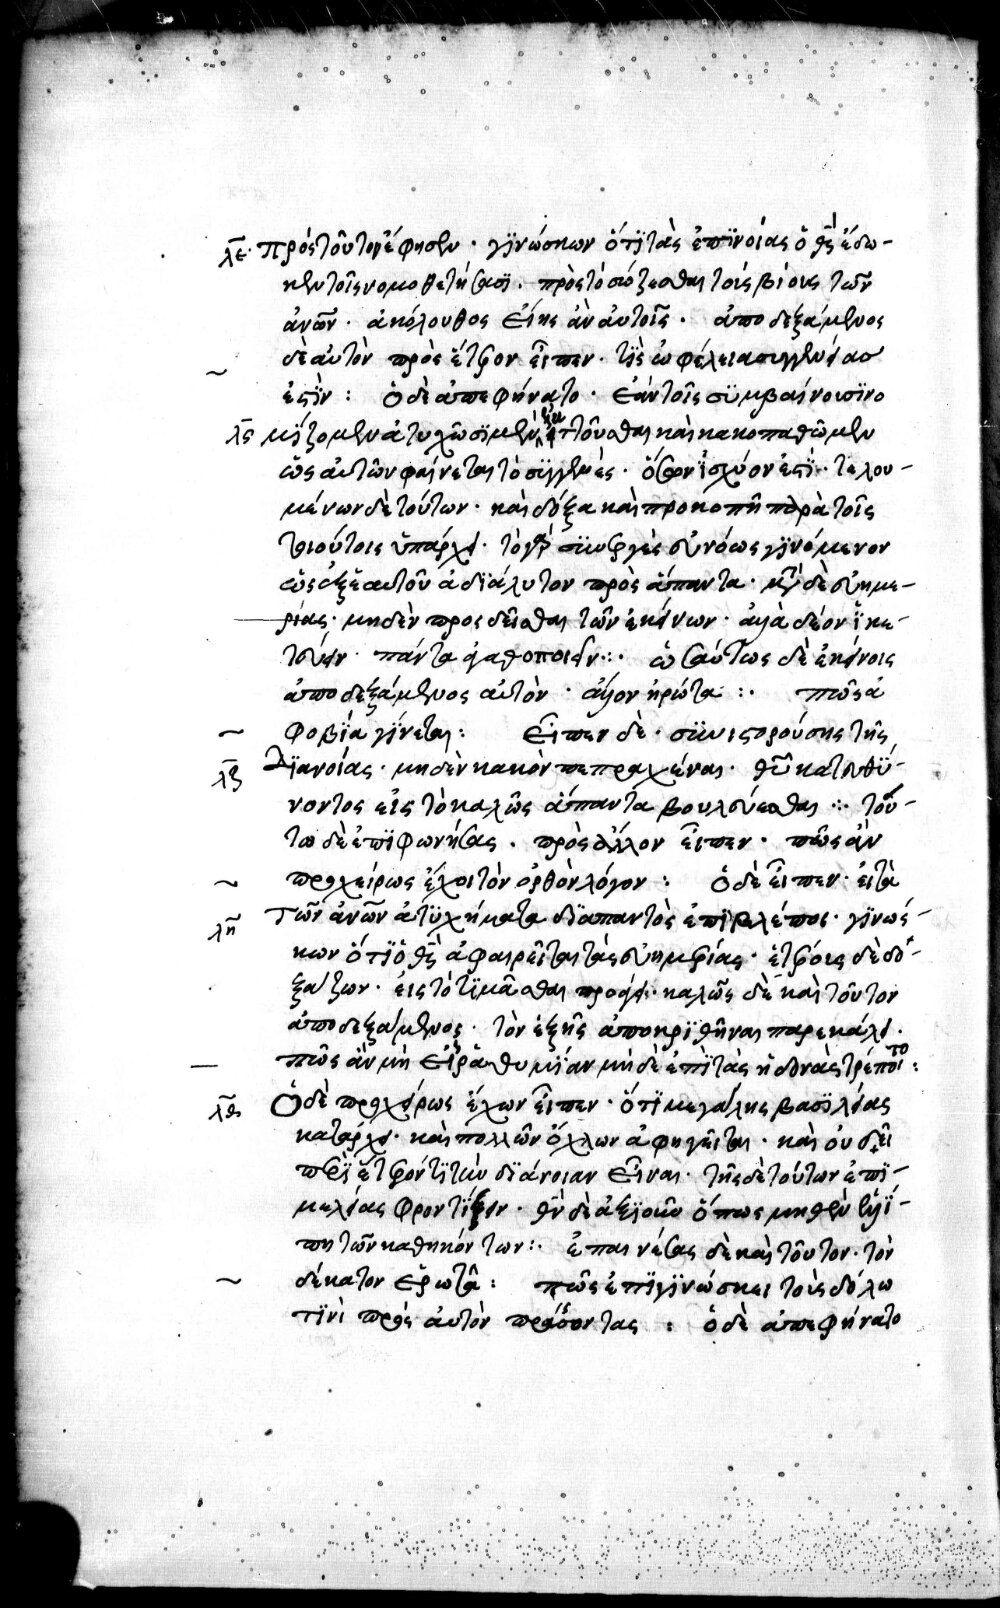 λε· πρὸς τοῦτον ἔφησεν· γϊνώσκων ὅτϊ τὰς ἐπϊνοίας ὁ θς ἔδω-
κεν τοῖς νομοθετήσασϊ. πρὸς τὸ σώζεσθαι τοὺς βίους τῶν
ἀνῶν· ἀκόλουθος εἴης ἂν αὐτοῖς. ἀποδεξάμενος
δὲ αὐτὸν πρὸς ἕτερον εἶπεν· τΐς ὠφέλεια συγγενείας
ἐστΐν : ὁ δὲ ἀπεφήνατο· ἐὰν τοῖς συμβαίνουσϊ νο
λϛ μΐζομεν ἀτυχοῦσϊ μὲν ἐλαττοῦσθαι καὶ κακοπαθῶμεν
ὡς αὐτῶν φαίνεται τὸ συγγενὲς· ὅσον ἰσχύον ἐστΐ· τελου-
μένων δὲ τούτων· καὶ δόξα καὶ προκοπὴ παρὰ τοῖς
τοιούτοις ὑπάρχει· τὸ γὰρ συνεργὲς εὐνόως γϊνόμενον
ὡς ἐξ ἑαυτοῦ ἀδϊάλυτον πρὸς ἅπαντα· μετὰ δὲ εὐημε-
ρίας· μηδὲν προσδεῖσθαι τῶν ἐκείνων· ἀλλὰ δέον ἱκε-
τεύειν· πάντα ἀγαθοποιεῖν :· ὡσαύτως δὲ ἐκείνοις
ἀποδεξάμενος αὐτὸν· ἄλλον ἠρώτα :· πῶς ἀ
φοβΐα γΐνεται : εἶπεν δὲ· συνιστορούσης τῆς
λζ Δϊανοίας· μηδὲν κακὸν πεπραχέναι· θυ κατευθύ-
νοντος εἰς τὸ καλῶς ἅπαντα βουλεύεσθαι :· τού-
τω δὲ ἐπϊφωνήσας. πρὸς ἄλλον εἶπεν· πῶς ἂν
προχείρως ἔχοι τὸν ὀρθὸν λόγον : ὁ δὲ εἶπεν· εἰ τὰ
λη τῶν ἀνῶν ἀτυχήματα δϊαπαντὸς ἐπϊβλέποι· γϊνώσ-
κων ὅτϊ ὁ θς ἀφαιρεῖται τὰς εὐημερίας· ἑτέρους δὲ δο-
ξάζων· εἰς τὸ τϊμᾶσθαι προάγει· καλῶς δὲ καὶ τοῦτον
ἀποδεξάμενος· τὸν ἑξῆς ἀποκρϊθῆναι παρεκάλει.
πῶς ἂν μὴ εἰς ῥαθυμΐαν μηδὲ ἐπϊ τὰς ἡδονὰς τρέποιτο :
λθ ὁ δὲ προχείρως ἔχων εἶπεν· ὅτϊ μεγάλης βασϊλείας
κατάρχει· καὶ πολλῶν ὄχλων ἀφηγεῖται· καὶ οὐ δεῖ
περΐ ἕτερόν τϊ τὴν δϊάνοιαν εἶναι· τῆς δὲ τούτων ἐπϊ-
μελείας φροντΐζειν· θν δὲ ἀξϊοῦν ὅπως μηθὲν ἐλλΐ-
πη τῶν καθηκόντων :· ἐπαινέσας δὲ καὶ τοῦτον· τὸν
δέκατον ἐρωτᾶ : πῶς ἐπϊγϊνώσκει τοὺς δόλω
τϊνὶ πρὸς αὐτὸν πράσσοντας : ὁ δὲ ἀπεφήνατο